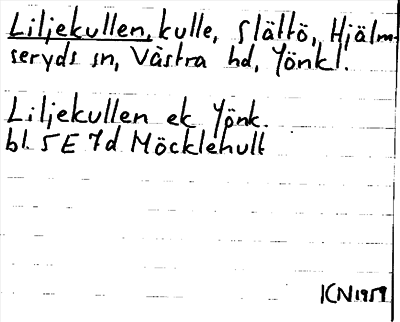 Liljekullen, kulle, Slättö, Hjälm-
seryds sn, Västra hd, Jönk l.
Liljekullen ek Jönk.
bl 5E 7d Möcklehult
KN 1959